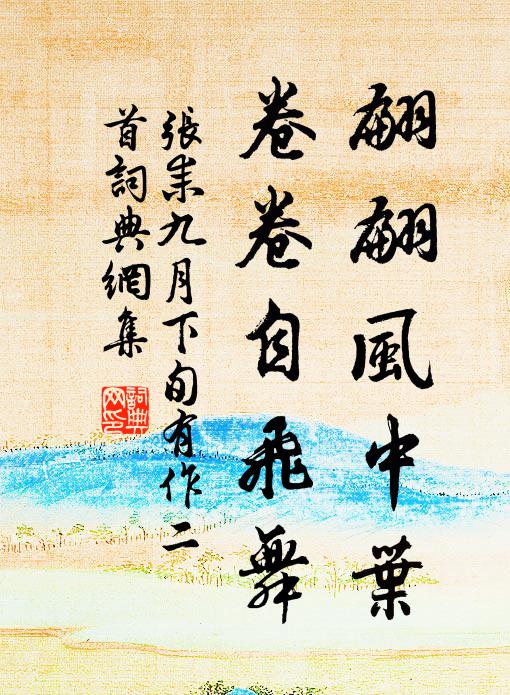 翩翩風中葉
卷卷自飛舞
張耒九月下旬有作二
首詞典網集
詞典
网印